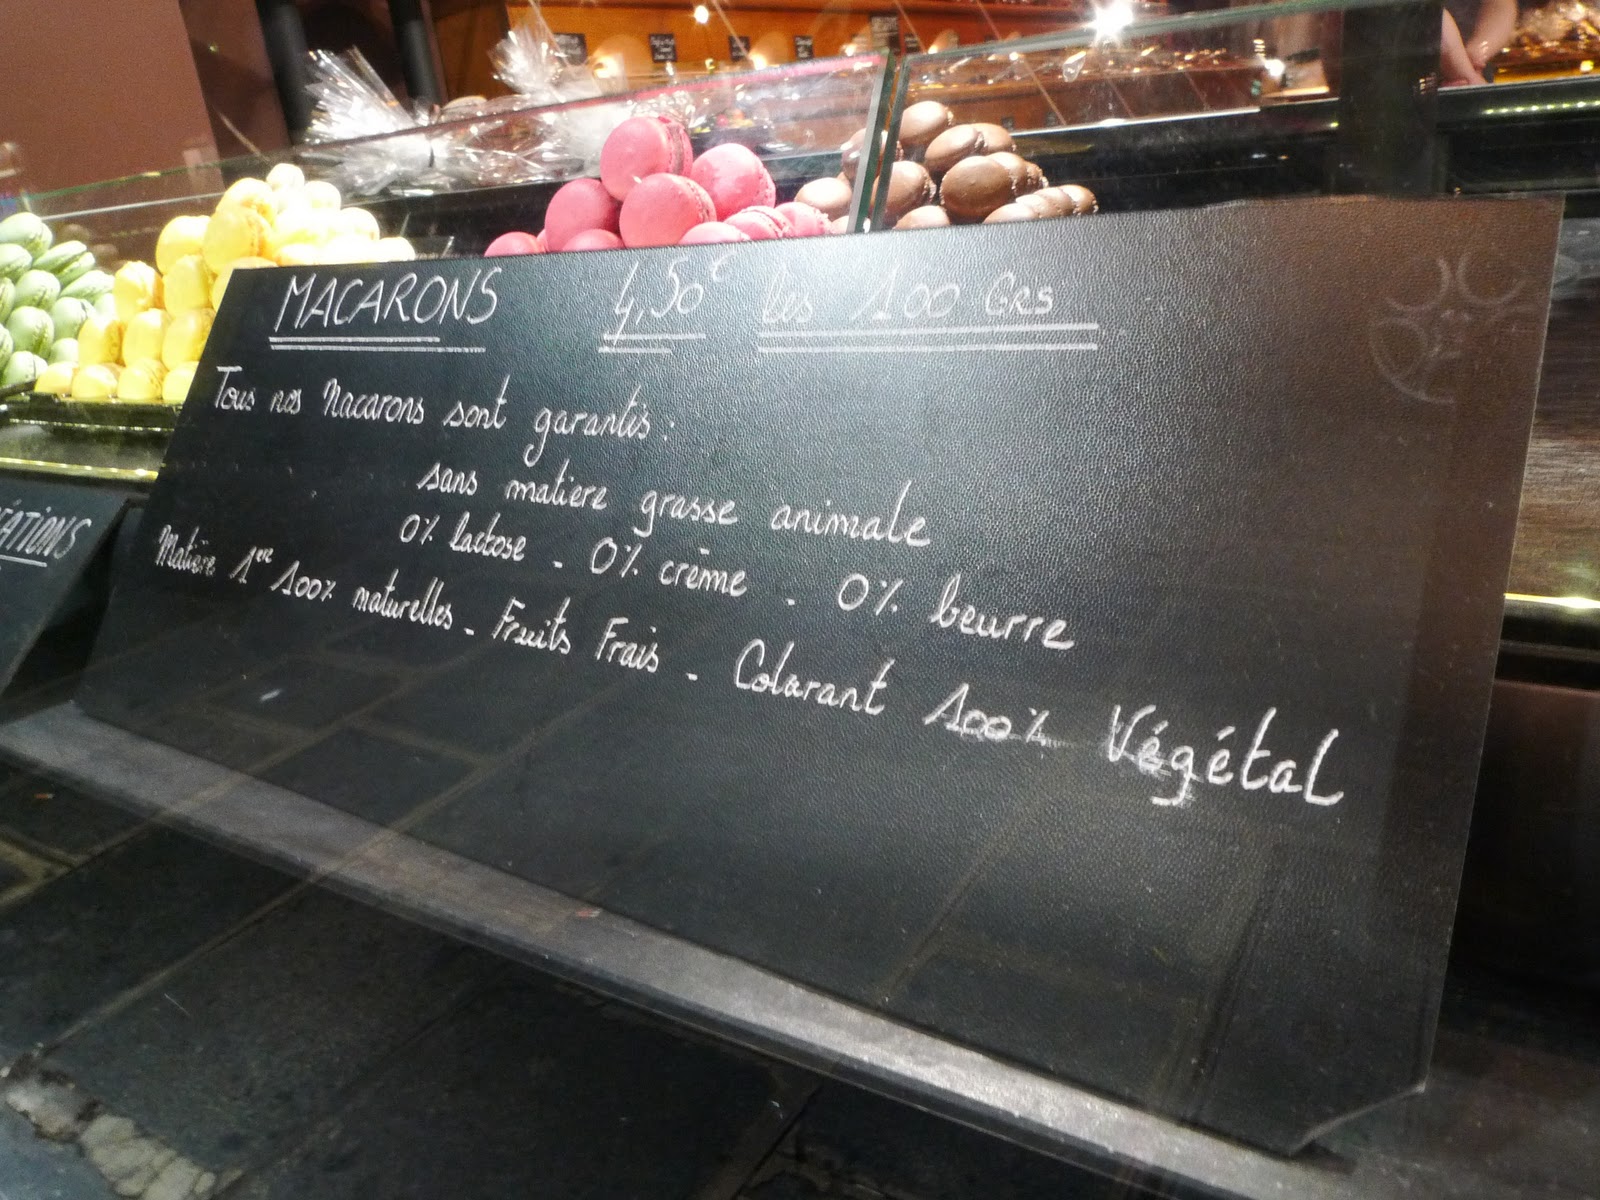 MACARONS 4,50€ les 100 GRS
Tous nos Macarons sont garantis :
sans matière grasse animale
0% lactose - 0% crème - 0% beurre
Matière 1ere 100% naturelles - Fruits Frais - Colorant 100% Végétal